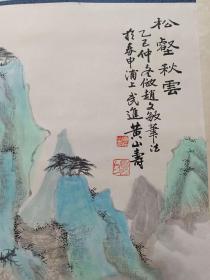 松壑秋雲
乙巳仲冬倣趙文敏筆法
於春申浦上武進黃山壽